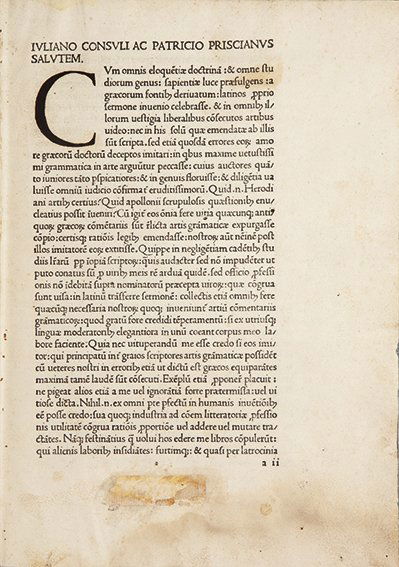 IVLIANO CONSVLI AC PATRICIO PRISCIANVS
SALVTEM.
CVm omnis eloquẽtiæ doctrinã: & omne stu
diorum genus: sapientiæ luce præfulgens: a
græcorum fontibꝰ deriuatum: latinos ꝓprio
sermone inuenio celebrasse. & in omnibꝰ il⸗
lorum uestigia liberalibus cõsecutos artibus
uideo: nec in his solũ quæ emendatæ ab illis
sũt scripta. sed etiã quosdã errores eoꝝ amo
re græcorũ doctorũ deceptos imitari: in qbus maxime uetustissi
mi grammatica in arte arguũtur peccasse: cuius auctores quã⸗
to iuniores tãto pspicatiores: & in genuis floruisse: & diligẽtia ua
luisse omniũ iudicio cõfirmãt eruditissimorũ. Quid .n. Herodi
ani artibꝰ certius? Quid apollonii scrupulosis quæstionibꝰ enu⸗
cleatius possit
Cũ igit̃ eos õnia fere uitia quæcunqꝫ anti⸗
quoꝝ græcoꝝ cõmentariis sũt relicta artis grãmaticæ expurgasse
cõpio: certisqꝫ ratiõis legibꝰ emendasse: nostroꝝ aũt neĩnẽ post
illos imitatorẽ eoꝝ extitisse. Quippe in negligẽtiam cadẽtibꝰ stu
diis lr̃arũ ꝓp̃ iopiã scriptoꝝ: quis audacter sed nõ impudẽter ut
puto conatus sũ ꝓ uiribꝰ meis rẽ arduã quidẽ. sed officio ꝓfessi
onis nõ ĩdebitã supra nominatorũ præcepta uiroꝝ: quæ cõgrua
sunt uisa: in latinũ trãsferre sermonẽ: collectis etiã omnibꝰ fere
quæcũqꝫ necessaria nostroꝝ quoqꝫ inueniunt̃ artiũ cõmentariis
grãmaticoꝝ: quod gratũ fore credidi tẽperamentũ: si ex utriusqꝫ
linguæ moderatoribꝰ elegantiora in unũ coeant corpus meo la⸗
bore faciente. Quia nec uituperandũ me esse credo si eos imi⸗
tor: qui principatũ inť graios scriptores artis grãmaticæ possidẽt
cũ ueteres nostri in erroribꝰ etiã ut dictũ est græcos equiparãtes
maximã tamẽ laudẽ sũt cõsecuti. Exẽplũ etiã ꝓponer̃ placuit: ne
ne pigeat alios etiã a me uel ignorãtia forte prætermissa: uel ui
tiose dicta. Nihil .n. ex omni pte pfectũ in humanis inuẽtiõibꝰ
eẽ posse credo: sua quoqꝫ industria ad cõem litteratoriæ ꝓfessio
nis utilitatẽ cõgrua ratiõis ꝓportiõe uel addere uel mutare tra⸗
ctãtes. Nãqꝫ festinãtius q̃ uolui hos edere me libros cõpulerũt:
qui alienis laboribꝰ insidiãtes: furtimqꝫ: & quasi per latrocinia
a ii